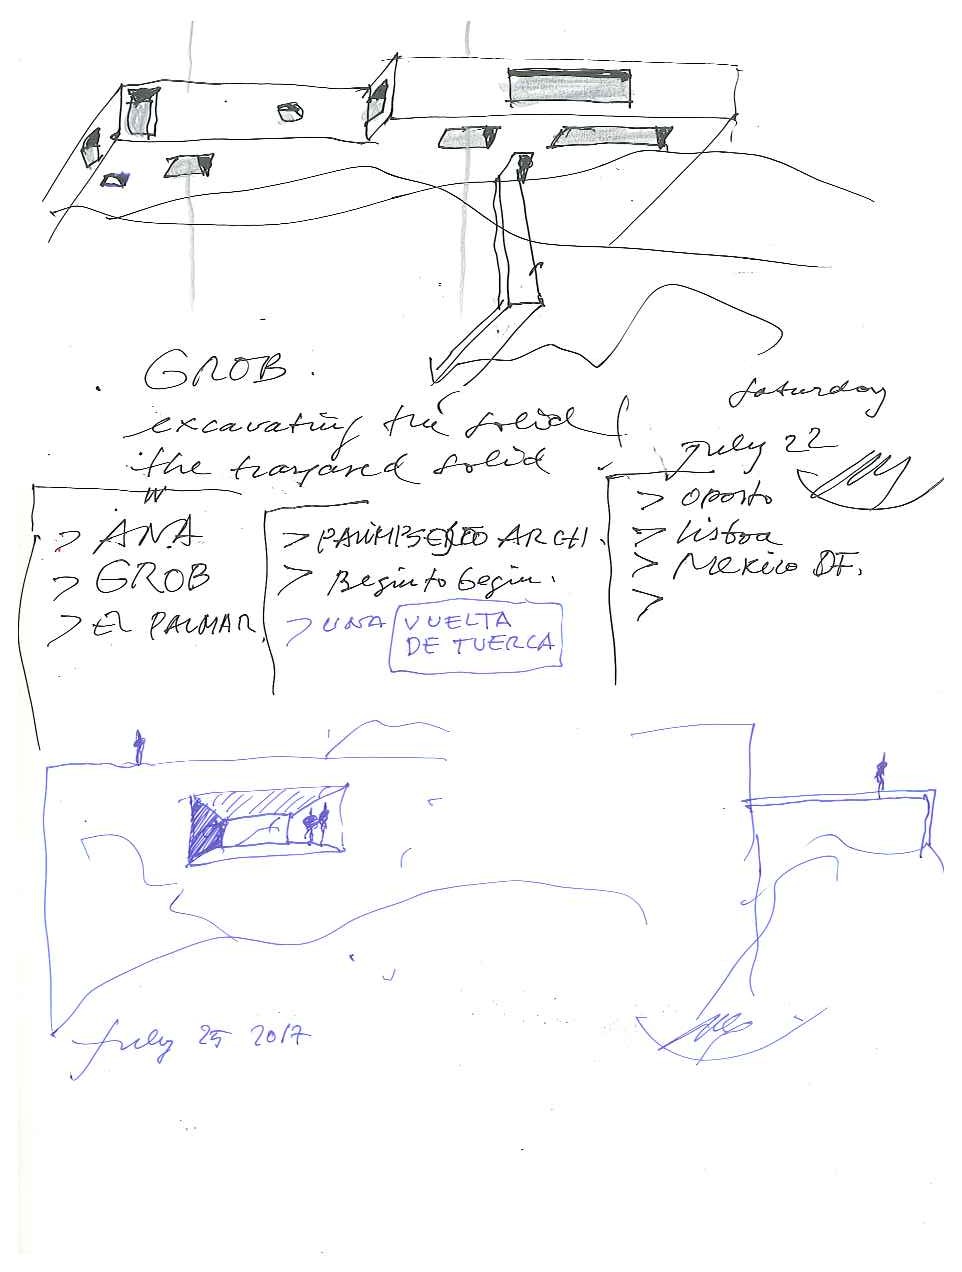 GROB.
excavating the solid
the solid
Saturday
July 22
> ANA
> GROB
> EL PALMAR
> ARCHI.
> Begin to begin.
> UNA VUELTA
DE TUERCA
> oporto
> lisboa
> Mexico DF.
>
July 25 2017